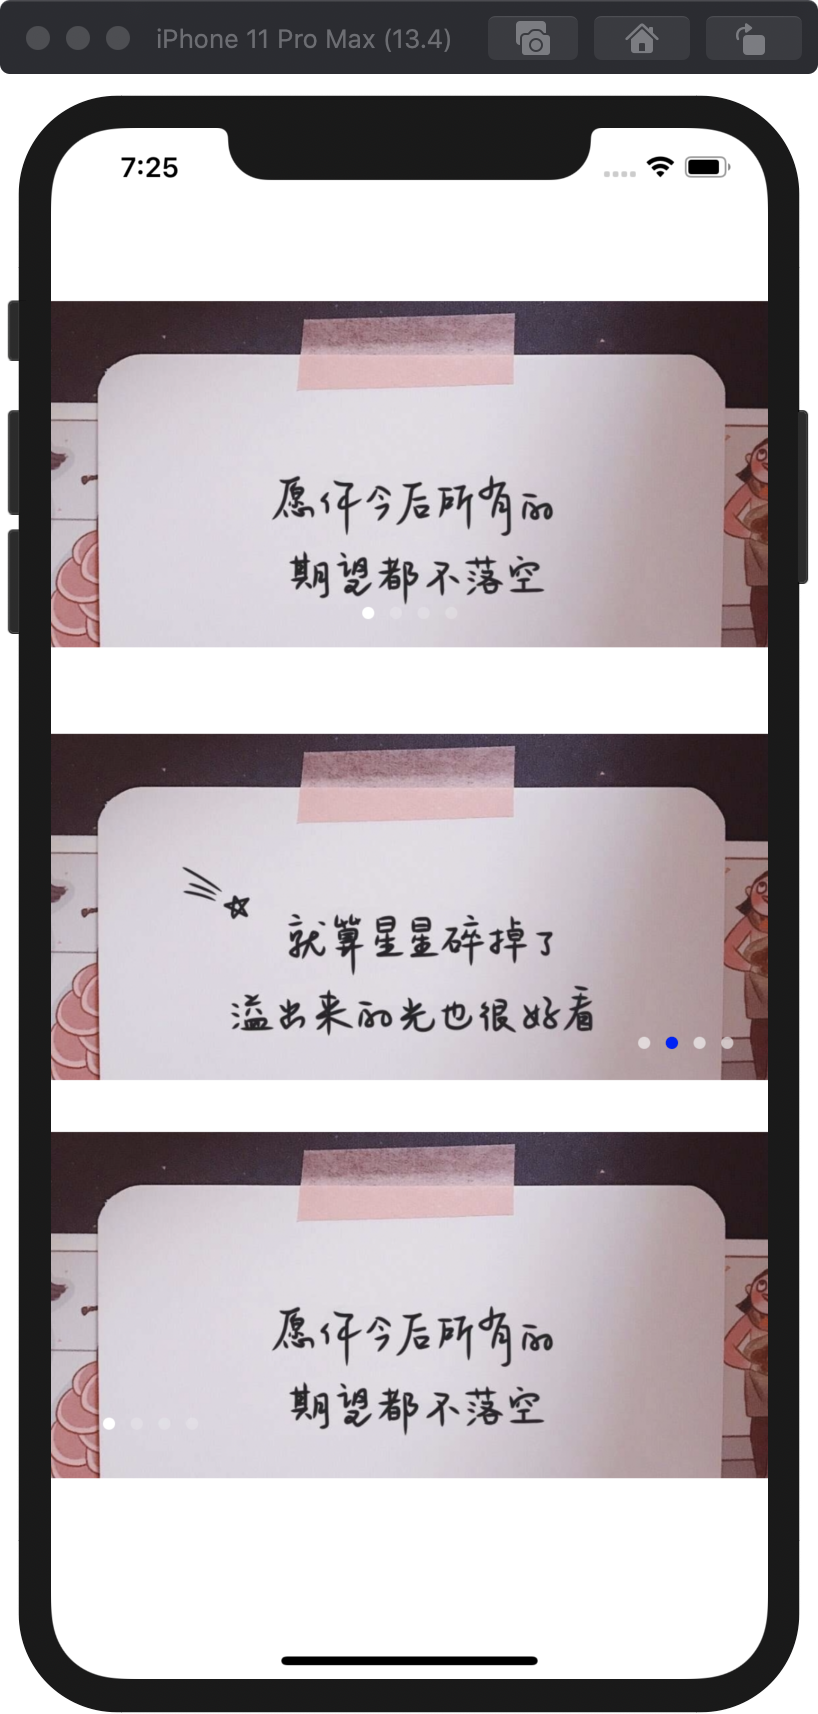 iPhone 11 Pro Max (13.4)
7:25
愿仟今后所有的
期望都不落空
就算星星碎掉了
溢出来的光也很好看
愿仟今后所有的
期望都不落空